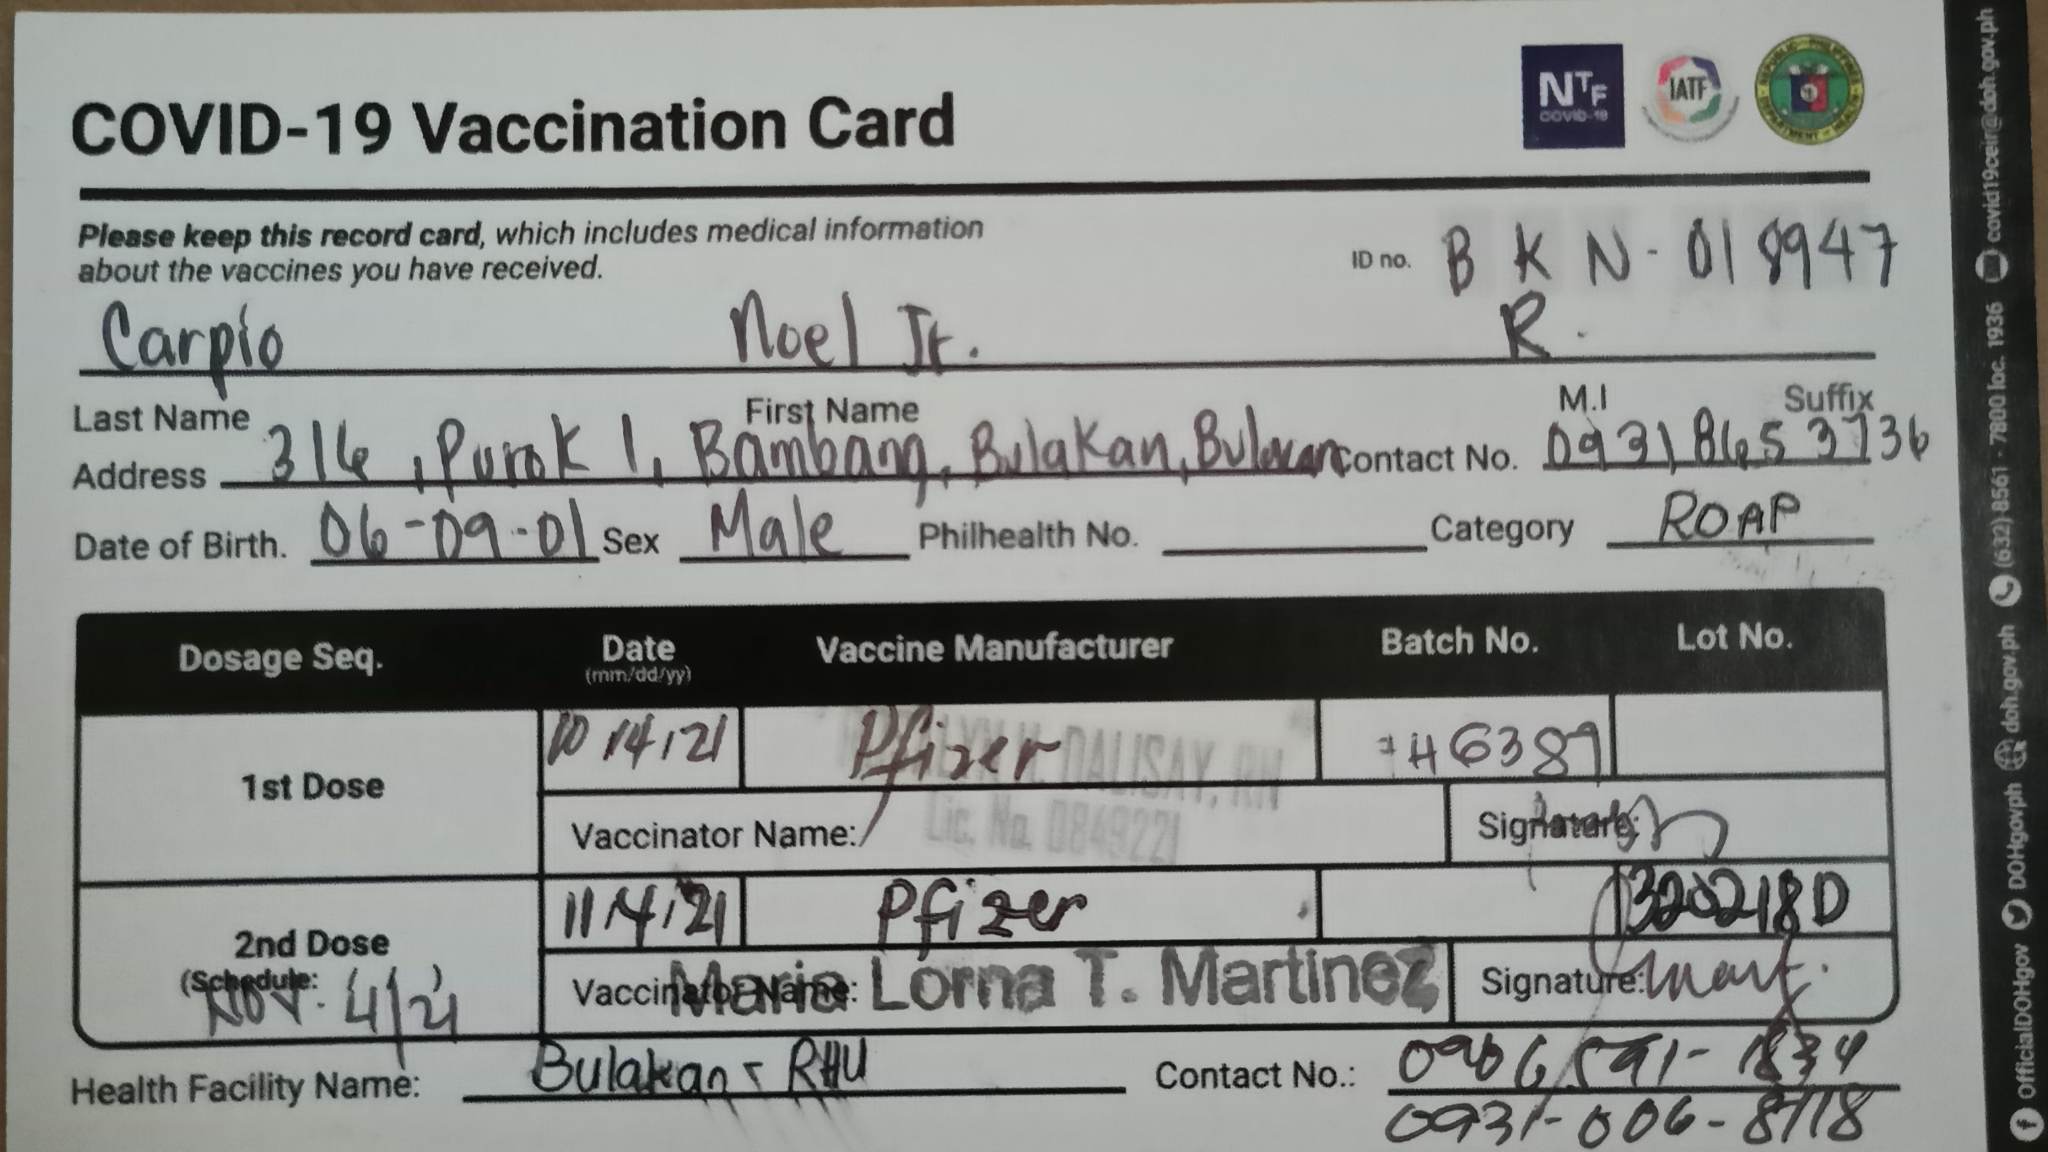 COVID-19 Vaccination Card
NTF
COVID-19
IATF
Please keep this record card, which includes medical information
about the vaccines you have received.
ID no. BKN-018947
Carpio Noel Jr. R.
Last Name First Name M.I Suffix
Address 316, Purok 1, Bambang, Bulakan, Bulacan Contact No. 09318653736
Date of Birth. 06-09-01 Sex Male Philhealth No. Category ROAP
Dosage Seq. Date Vaccine Manufacturer Batch No. Lot No.
(mm/dd/yy)
1st Dose 10/14/21 Pfizer
DALISAY, RN
Lic. No. 0849221
Vaccinator Name: Signature:
2nd Dose 11/4/21 Pfizer 320218D
(Schedule: Nov. 4/21
Vaccinator Name: Maria Lorna T. Martinez Signature:
Health Facility Name: Bulakan - RHU Contact No.: 0906 591-1834
0931-006-8118
OfficialDOHgov DOHgovph doh.gov.ph (632) 8561 - 7800 loc. 1936 covid19ceir@doh.gov.ph